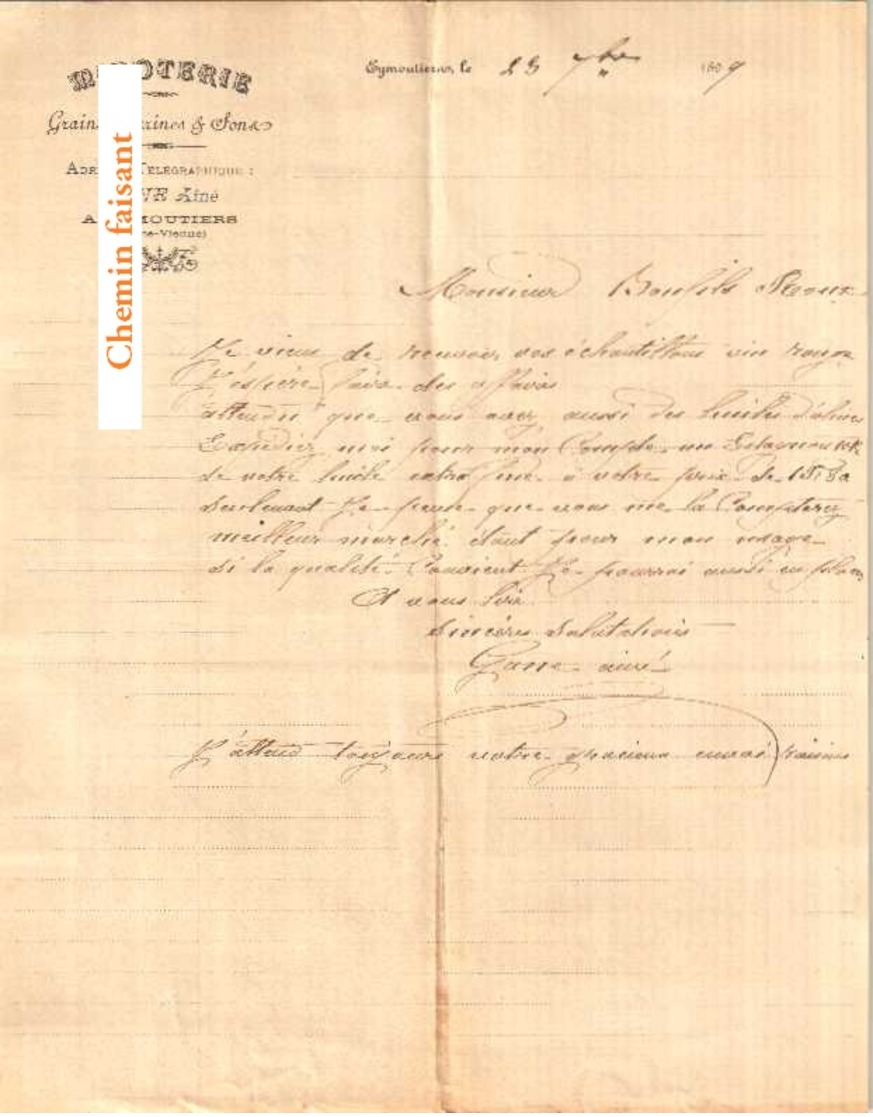 MINOTERIE
Grains Farines & Sons
ADRESSE TELEGRAPHIQUE :
Aîné
MOUTIERS
Chemin faisant
Eymoutiers, le 23 7bre 1909
Monsieur Bonfils Roux
Je viens de recevoir vos échantillons vin rouge
J'éspère faire des affaires
attendu que vous avez aussi des huiles d'olives
Expédiez moi pour mon Compte un Estagnon 10k
de votre huile extra fine à votre prix de
Seulement Je pense que vous me la Compterez
meilleur marché étant pour mon usage
Si la qualité Convient Je pourrai aussi en placer
Et vous lire
Sincères Salutations
Gane ainé
J'attend toujours votre gracieux envoi raisins